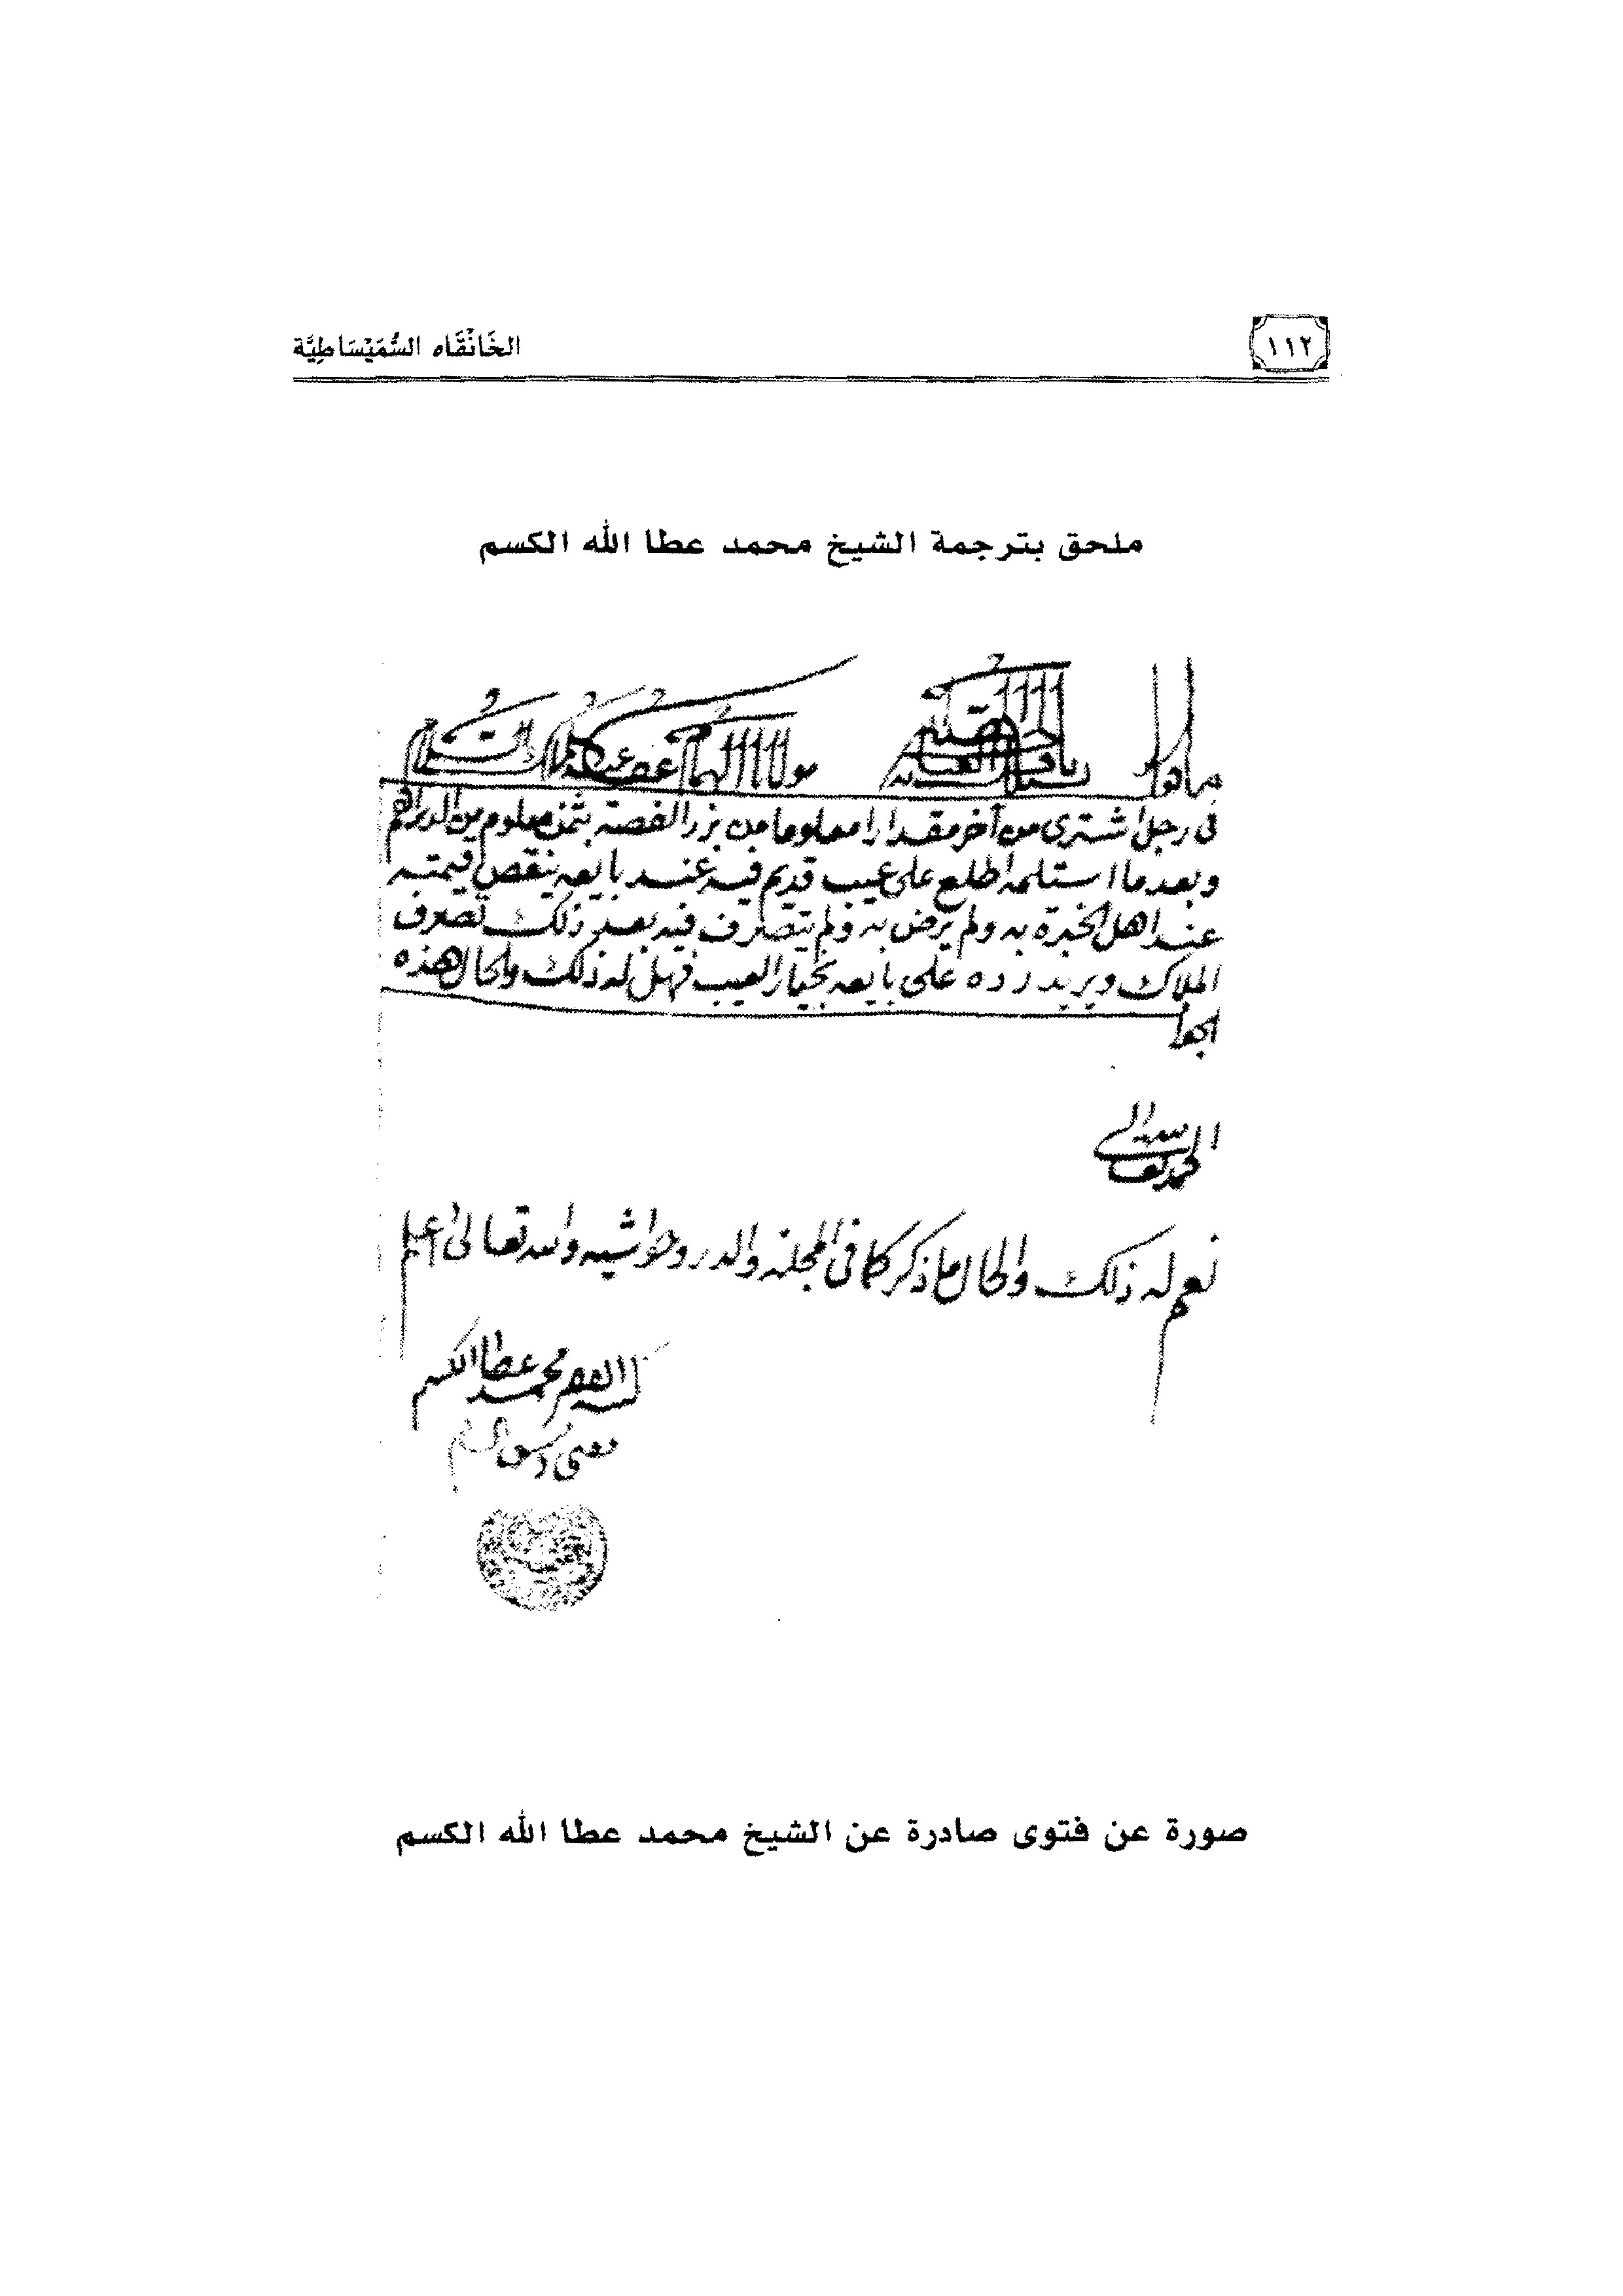 ١١٢
الخَانْقَاه السُّمَيْسَاطِيَّة
ملحق بترجمة الشيخ محمد عطا الله الكسم
ما قول مولانا
في رجل اشترى من آخر مقدارا معلوما من بزر الفصة بثمن معلوم من الدراهم
وبعد ما استلمه اطلع على عيب قديم فيه عند بايعه ينقص قيمته
عند اهل الخبرة به ولم يرض به ولم يتصرف فيه بعد ذلك تصرف
الملاك ويريد رده على بايعه بخيار العيب فهل له ذلك والحال هذه
الجواب
الحمد لله تعالى
نعم له ذلك والحال ما ذكر كما في المجلة والدر وحواشيه والله تعالى اعلم
كتبه الفقير محمد عطا الكسم
مفتي دمشق الشام
صورة عن فتوى صادرة عن الشيخ محمد عطا الله الكسم